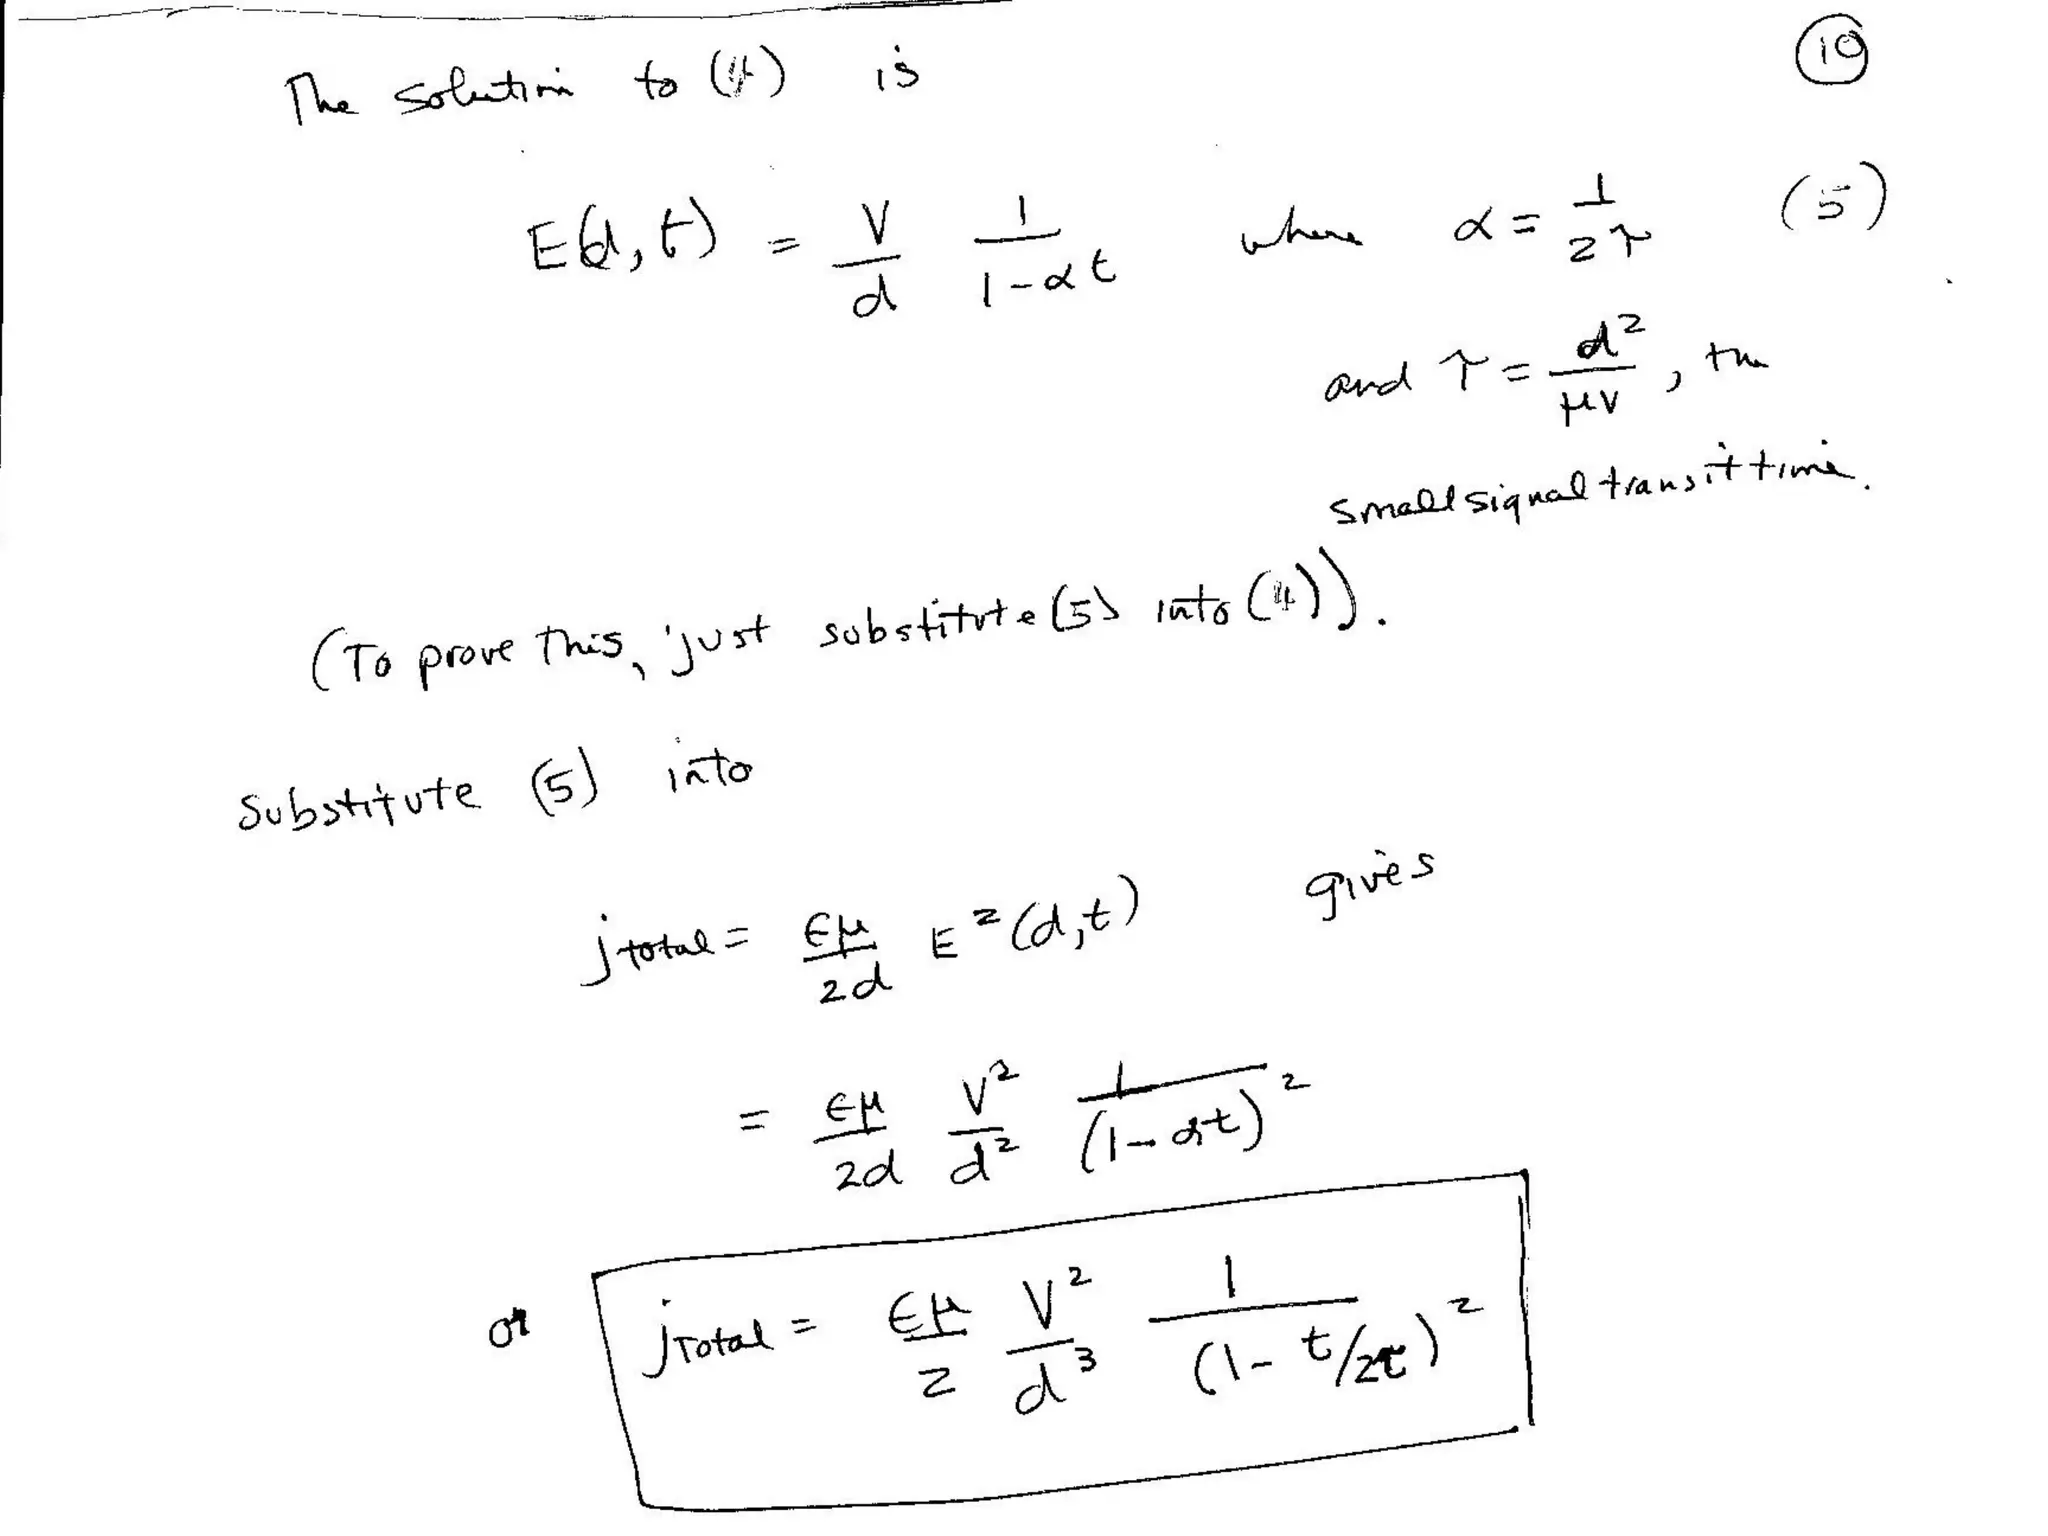 The solution to (4) is
10
E(d,t) = V/d 1/(1-αt) where α = 1/2τ (5)
and τ = d²/μV, the
small signal transit time.
(To prove this, just substitute (5) into (4)).
Substitute (5) into
jtotal = ϵμ/2d E²(d,t) gives
= ϵμ/2d V²/d² 1/(1-αt)²
or jTotal = ϵμ/2 V²/d³ 1/(1-t/2τ)²